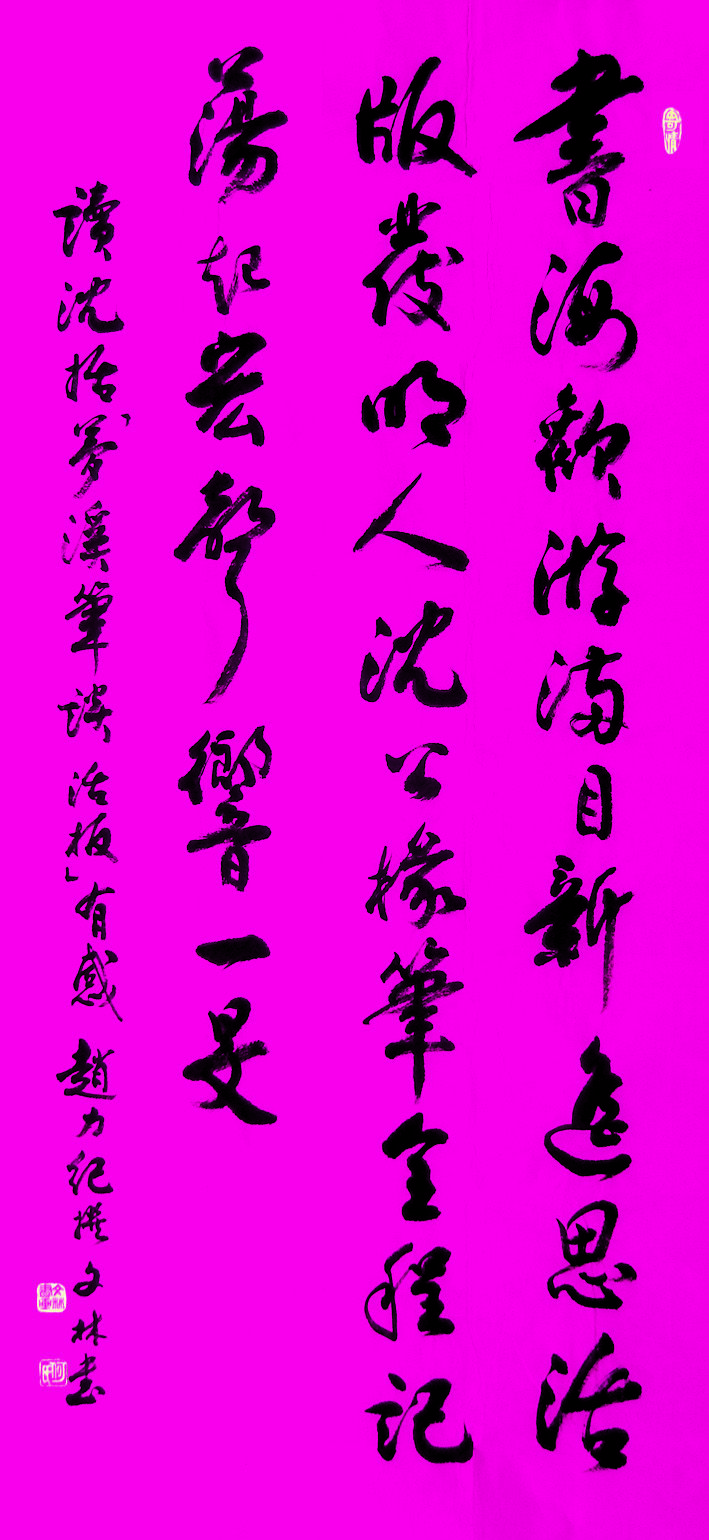 寄情
書海歡游滿目新遙思活
版發明人沈公椽筆全程記
蕩起宏聲響一旻
讀沈括「夢溪筆談活板」有感 趙力紀撰 文林書